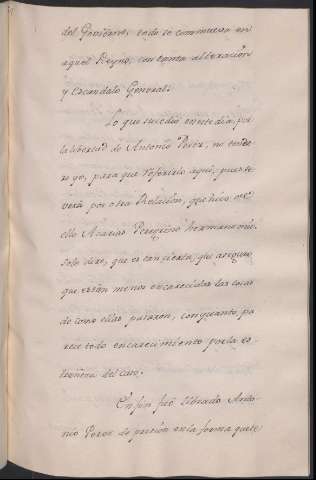 del Govierno: todo se commueva en
aquel Reyno, con tanta alteración
y Escandalo General.
Lo que sucedió en este dia, por
la libertad de Antonio Perez, no
yo, para que referirlo aquí, pues se
verá por otra Relación, que hizo de
ello Acacias Peregrino hermano mio.
Solo diré, que es tan cierta, que asegura
que están menos encarecidas las cosas
de como ellas pasaron, con quanto pa
rece todo encarecimiento por la es-
trañeza del caso.
En fin fué librado Anto-
nio Perez de prisión en la forma que se